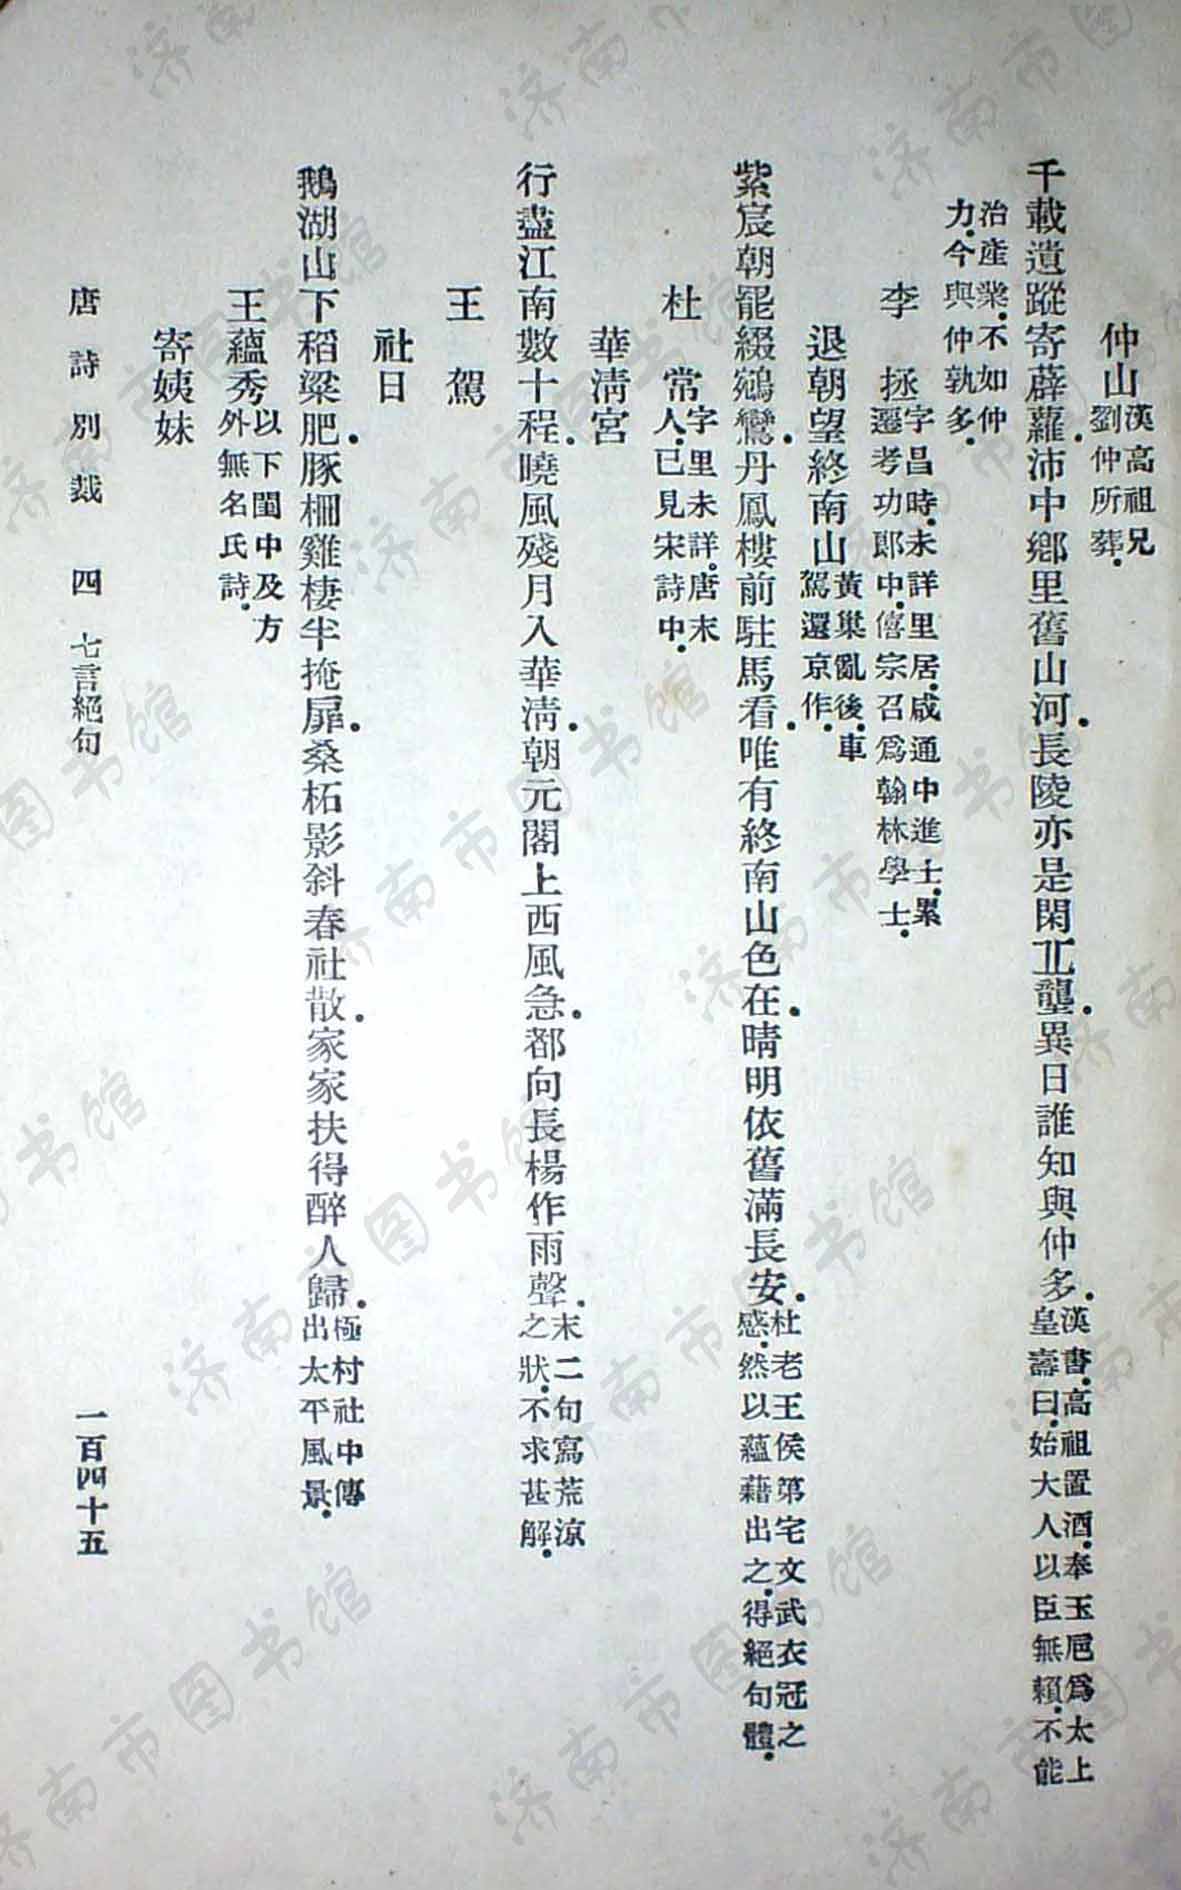 仲山漢高祖兄劉仲所葬.
千載遺蹤寄薜蘿.沛中鄉里舊山河.長陵亦是閑丘壟.異日誰知與仲多.漢書.高祖置酒.奉玉卮爲太上皇壽曰.始大人以臣無賴.不能
治產業.不如仲力.今與仲孰多.
李拯字昌時.未詳里居.咸通中進士.累遷考功郎中.僖宗召爲翰林學士.
退朝望終南山黃巢亂後.車駕還京作.
紫宸朝罷綴鵷鸞.丹鳳樓前駐馬看.唯有終南山色在.晴明依舊滿長安.杜老王侯第宅文武衣冠之感.然以蘊藉出之.得絕句體.
杜常字里未詳.唐末人.已見宋詩中.
華清宮
行盡江南數十程.曉風殘月入華清.朝元閣上西風急.都向長楊作雨聲.末二句寫荒涼之狀.不求甚解.
王駕
社日
鵝湖山下稻粱肥.豚柵雞棲半掩扉.桑柘影斜春社散.家家扶得醉人歸.極村社中傳出太平風景.
王蘊秀以下閨中及方外無名氏詩.
寄姨妹
唐詩別裁 四 七言絕句 一百四十五
济南市图书馆